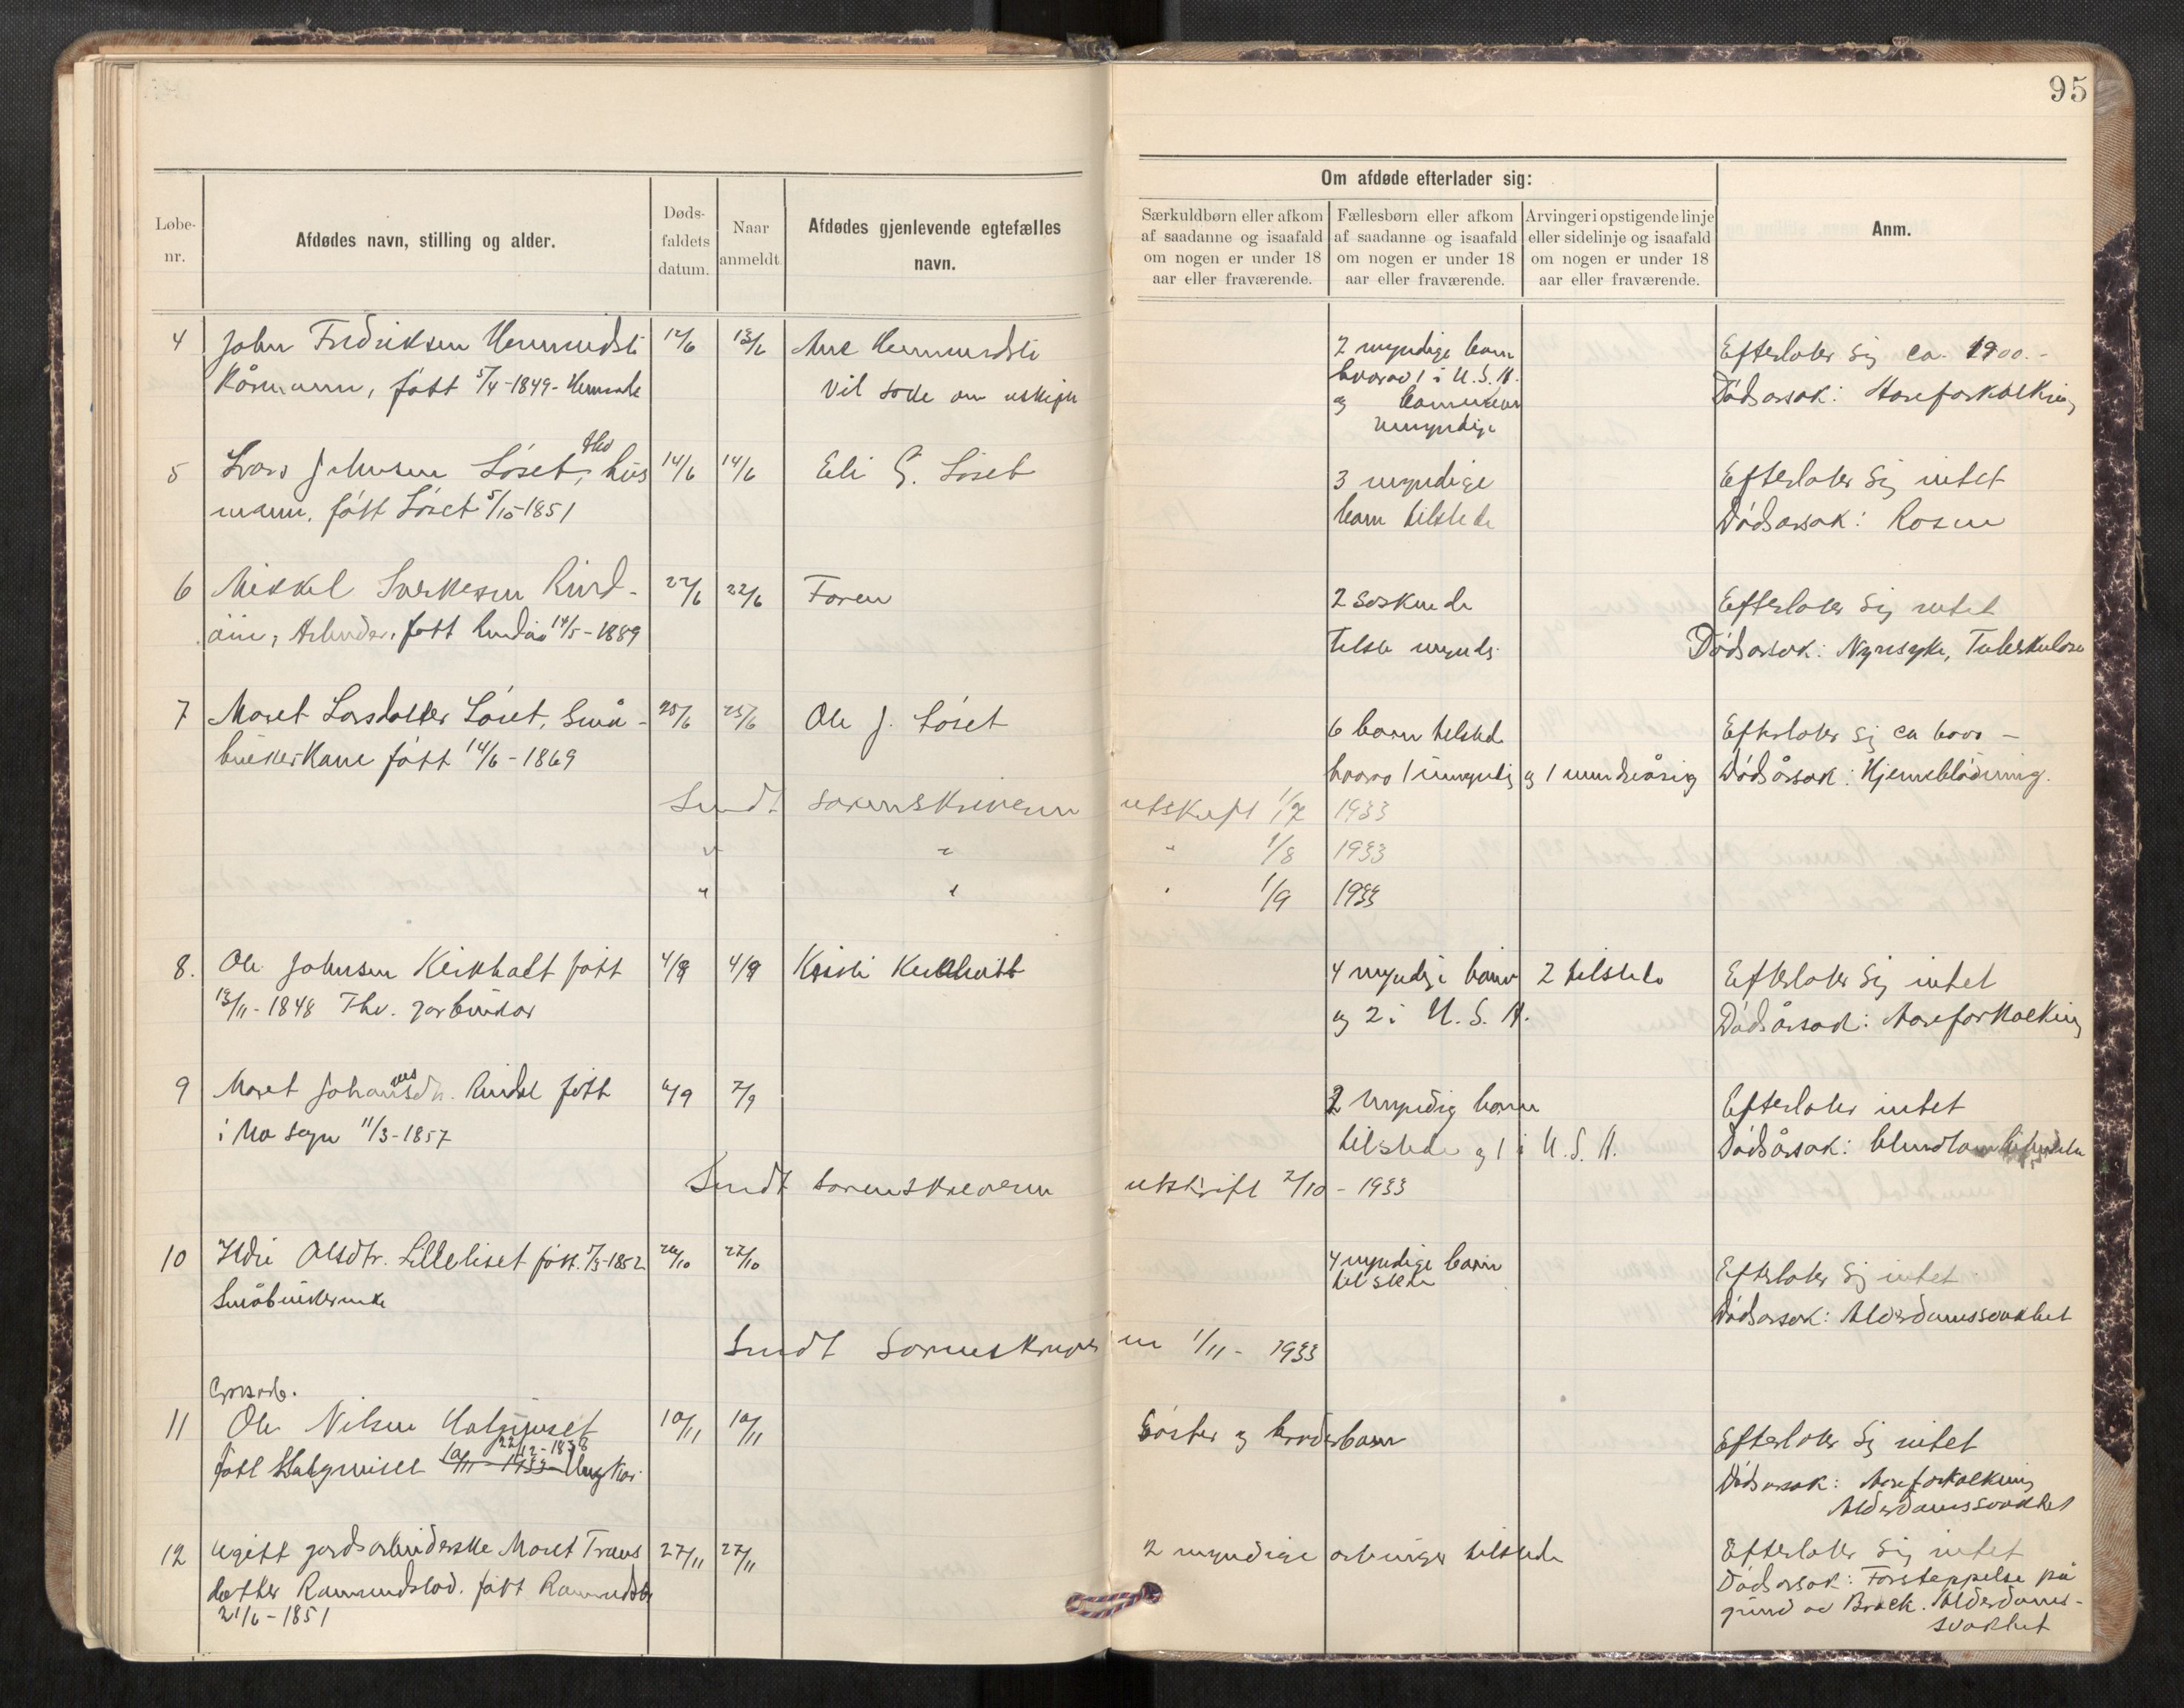 95
Løbe-
nr.
Afdødes navn, stilling og alder.
Døds-
faldets
datum.
Naar
anmeldt
Afdødes gjenlevende egtefælles
navn.
Om afdøde efterlader sig:
Særkuldbørn eller afkom
af saadanne og isaafald
om nogen er under 18
aar eller fraværende.
Fællesbørn eller afkom
af saadanne og isaafald
om nogen er under 18
aar eller fraværende.
Arvinger i opstigende linje
eller sidelinje og isaafald
om nogen er under 18
aar eller fraværende.
Anm.
4 John Fredriksen 12/6 13/6
Kårmann, født 5/4-1849-
Vil søke om uskifte
2 myndige barn
hvorav 1 i U.S.A.
og
umyndige
Efterlater sig ca. 1900.-
Dødsårsak: Åreforkalkning
5 Lars Johnsen Løset, fhv hus 14/6 14/6 Eli G. Løset
mann. født Løset 5/10-1851
3 myndige
barn tilstede
Efterlater sig intet
Dødsårsak: Rosen
6 Mikkel 22/6 22/6 Faren
Arbeider. født 14/5-1889
2 søskende
Efterlater sig intet
Dødsårsak: Nyresyke, Tuberkulose
7 Maret Larsdatter Løset, Små- 25/6 25/6 Ole J. Løset
brukerkone født 14/6-1869
6 barn tilstede
hvorav 1 umyndig og 1 mindreårig
Efterlater sig ca
Dødsårsak: Hjerneblødning.
Sendt sorenskriveren utskrift 1/7 1933
" " " 1/8 1933
" " " 1/9 1933
8. Ole Johnsen Kirkholt født 4/8 4/8 Kirkholt
13/11-1848 Fhv. garbruker
4 myndige barn 2 tilstede
og 2 i U.S.A.
Efterlater sig intet
Dødsårsak: Åreforkalkning
9 Maret Johannesdtr. Rindal født 6/9 7/9
i Mo sogn 11/3-1857
2 myndig barn
tilstede og 1 i U.S.A.
Efterlater intet
Dødsårsak: Blindtarmbetendelse
Sendt sorenskriveren utskrift 2/10-1933
10 Ildri Olsdtr. Lilleliset født. -1852 26/10 27/10
Småbrukerenke
4 myndige barn
tilstede
Efterlater sig intet
Dødsårsak: Alderdomssvakhet
Sendt Sorenskriveren 1/11-1933
11 Ole Nilsen 10/11 10/11
født 22/12-1838 10/11-1933 Ungkar
Søster og broderbarn
Efterlater sig intet
Dødsårsak: Åreforkalkning
Alderdomssvakhet
12 Ugift gardsarbeiderske Maret Trons 27/11 27/11
datter født
21/6-1851
2 myndige arvinger tilstede
Efterlater sig intet
Dødsårsak: Forstoppelse på
grund av Brock. Alderdoms-
svakhet